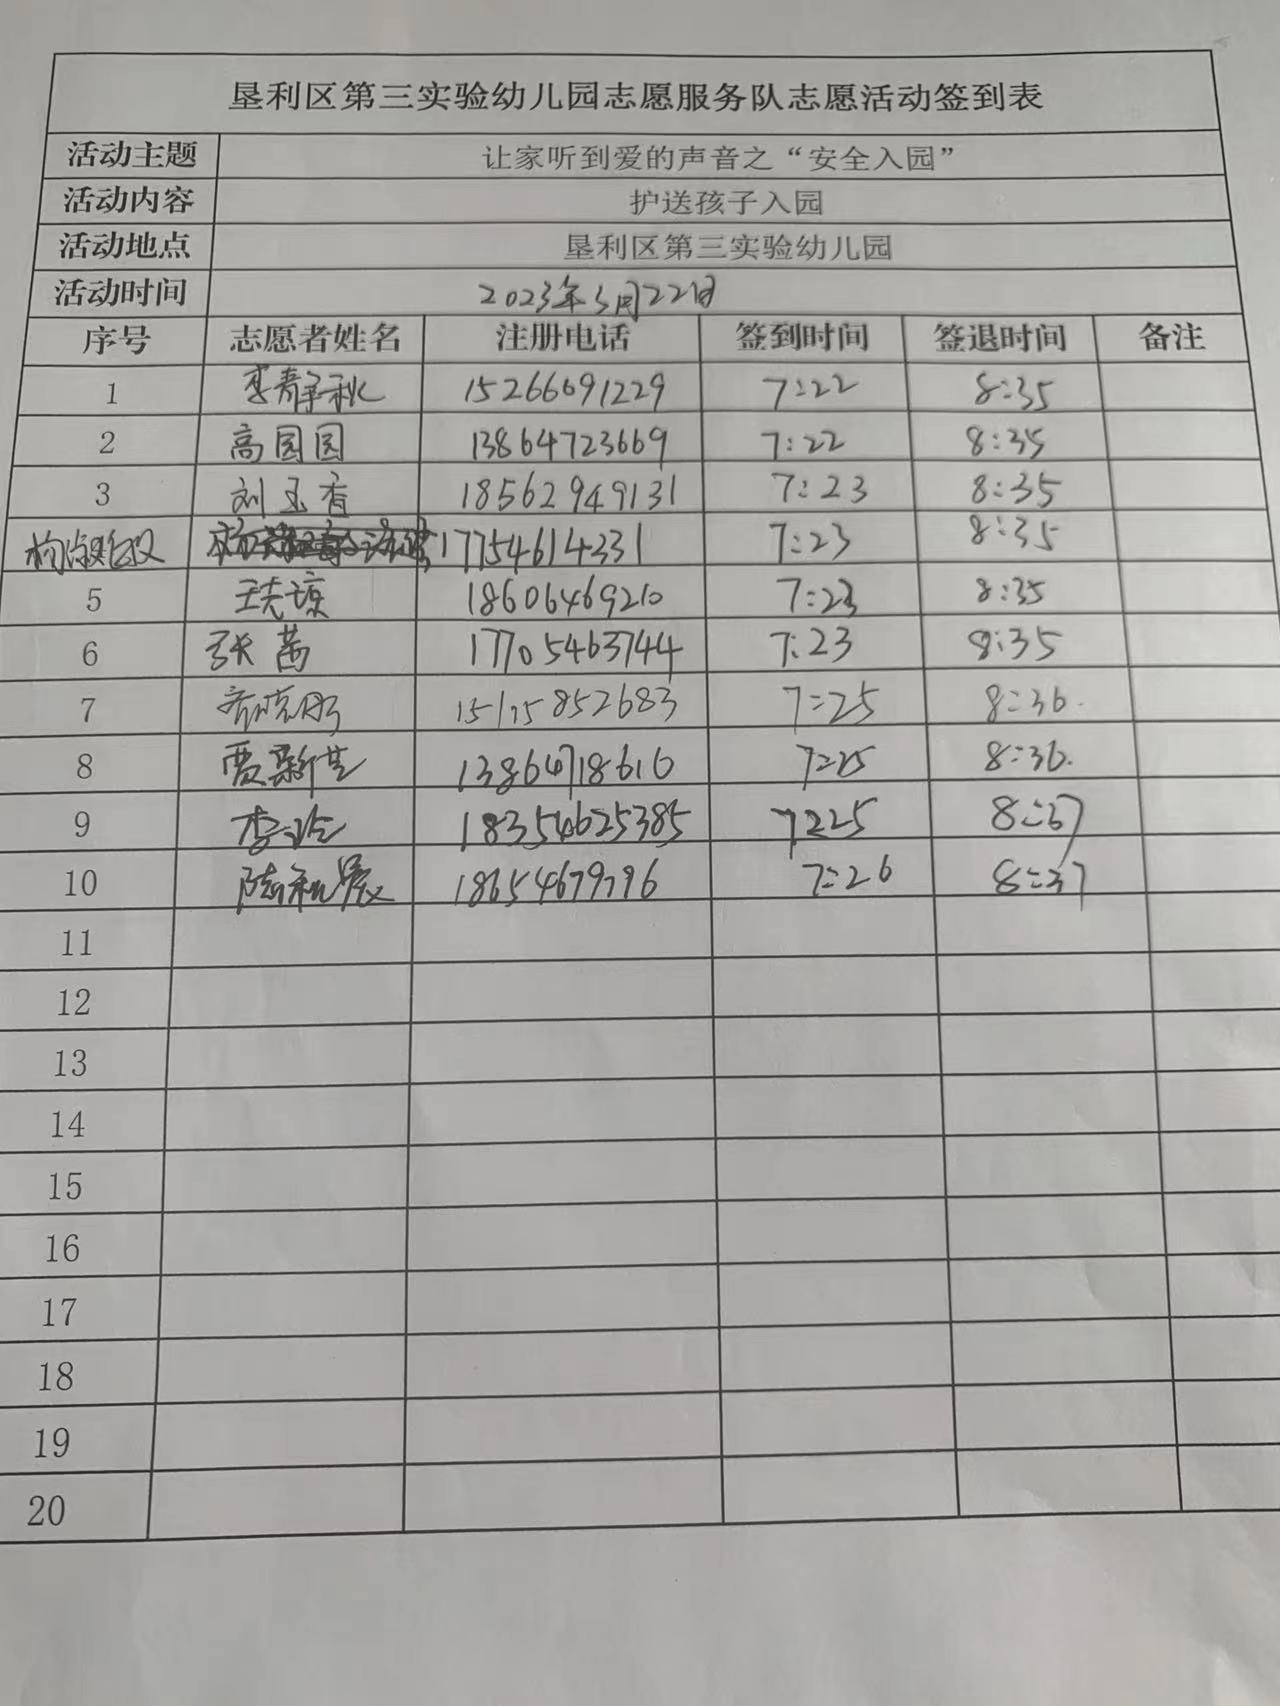 垦利区第三实验幼儿园志愿服务队志愿活动签到表
活动主题 让家听到爱的声音之“安全入园”
活动内容 护送孩子入园
活动地点 垦利区第三实验幼儿园
活动时间 2023年5月22日
序号 志愿者姓名 注册电话 签到时间 签退时间 备注
1 李静秋 15266691229 7:22 8:35
2 高园园 13864723669 7:22 8:35
3 刘玉香 18562949131 7:23 8:35
17754614331 7:23 8:35
5 18606469210 7:23 8:35
6 张茜 17705463744 7:23 8:35
7 15175852683 7:25 8:36.
8 13864718616 7:25 8:36.
9 李玲 18354625385 7:25 8:37
10 7:26 8:37
11
12
13
14
15
16
17
18
19
20